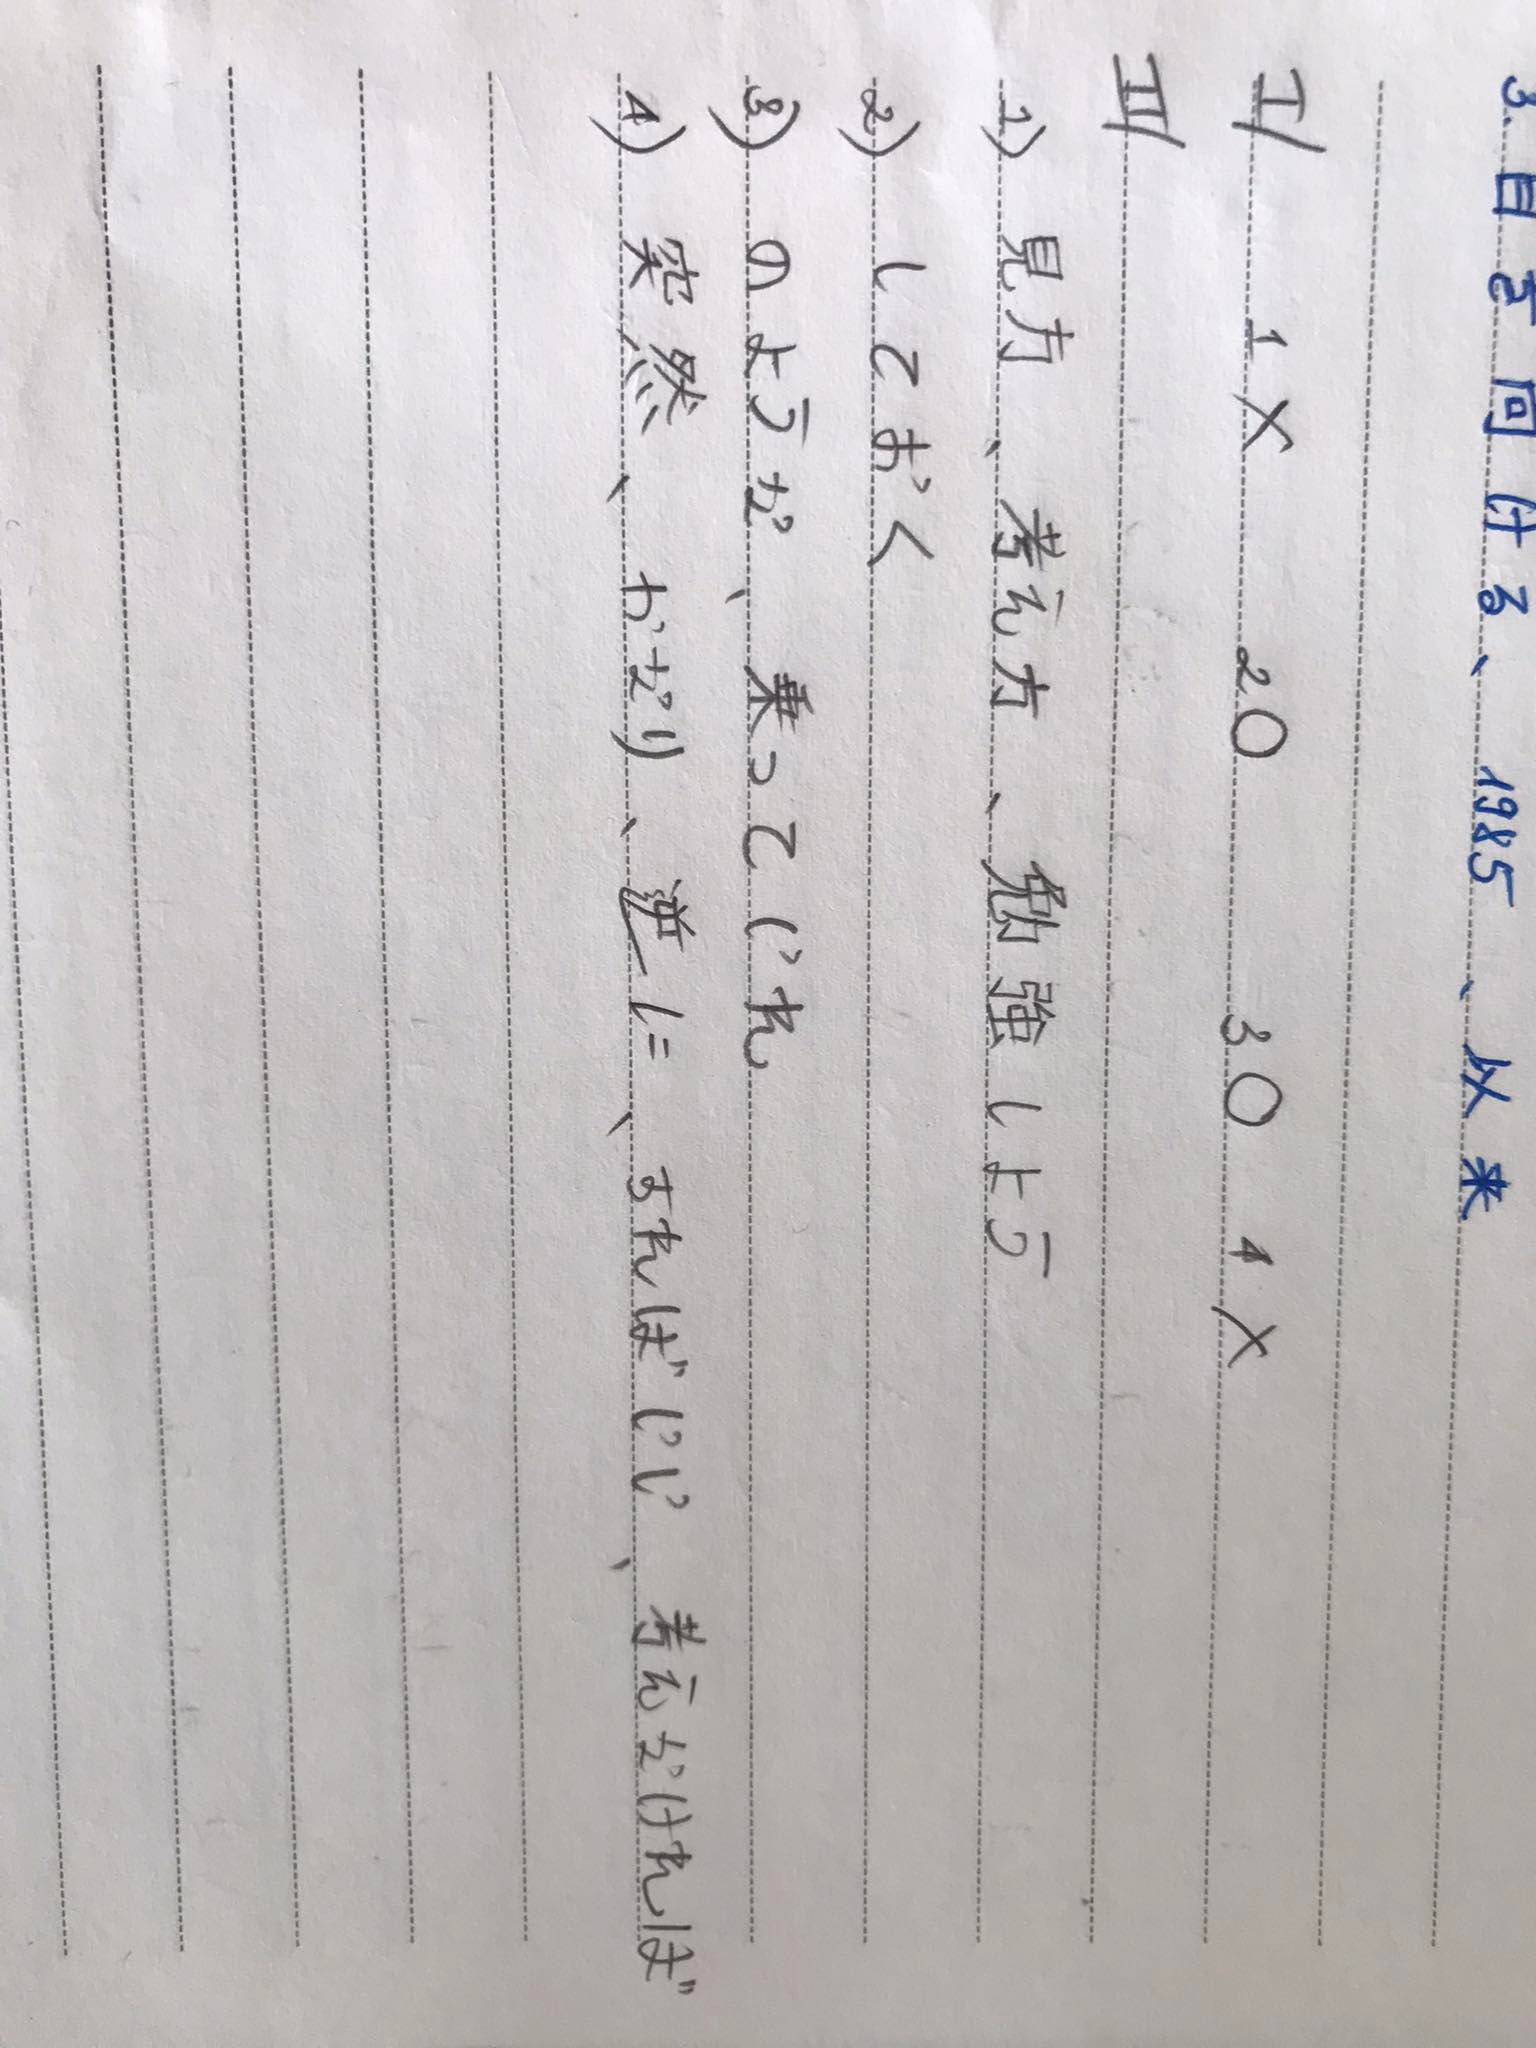 3. 目を向ける、1985、以来
I/ 1 X 2 O 3 O 4 X
II/
1) 見方、考え方、勉強しよう
2) しておく
3) のような、乗っていれ
4) 突然、かなり、逆に、すればいい、考えなければ